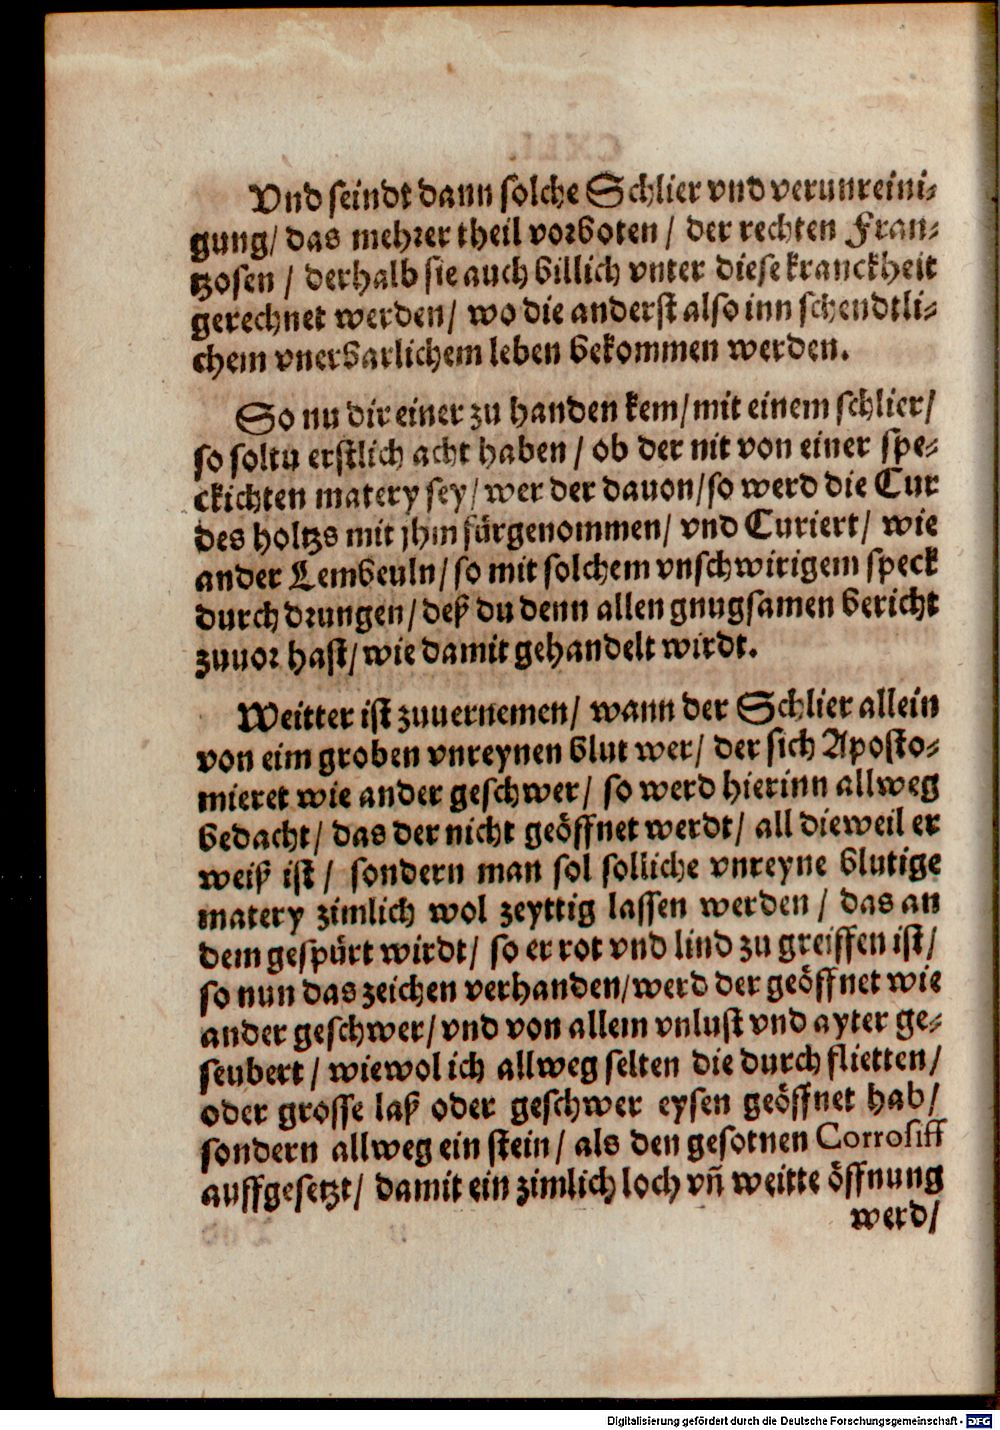 Vnd seindt dann solche Schlier vnd verunreini⸗
gung/ das mehrer theil vorboten / der rechten Fran⸗
tzosen / derhalb sie auch billich vnter diese kranckheit
gerechnet werden/ wo die anderst also inn schendtli⸗
chem vnerbarlichem leben bekommen werden.
So nu dir einer zu handen kem/ mit einem schlier/
so soltu erstlich acht haben / ob der nit von einer spe⸗
ckichten matery sey/ wer der dauon/ so werd die Cur
des holtzs mit jhm fürgenommen/ vnd Curiert/ wie
ander Lembeuln/ so mit solchem vnschwirigem speck
durch drungen/ deß du denn allen gnugsamen bericht
zuuor hast/ wie damit gehandelt wirdt.
Weitter ist zuuernemen/ wann der Schlier allein
von eim groben vnreynen blut wer/ der sich Aposto⸗
mieret wie ander geschwer/ so werd hierinn allweg
bedacht/ das der nicht geöffnet werdt/ all dieweil er
weiß ist / sondern man sol solliche vnreyne blutige
matery zimlich wol zeyttig lassen werden / das an
dem gespürt wirdt/ so er rot vnd lind zu greiffen ist/
so nun das zeichen verhanden/ werd der geöffnet wie
ander geschwer/ vnd von allem vnlust vnd ayter ge⸗
seubert / wiewol ich allweg selten die durch flietten/
oder grosse laß oder geschwer eysen geöffnet hab/
sondern allweg ein stein/ als den gesotnen Corrosiff
auffgesetzt/ damit ein zimlich loch vñ weitte öffnung
werd/
Digitalisierung gefördert durch die Deutsche Forschungsgemeinschaft - DFG